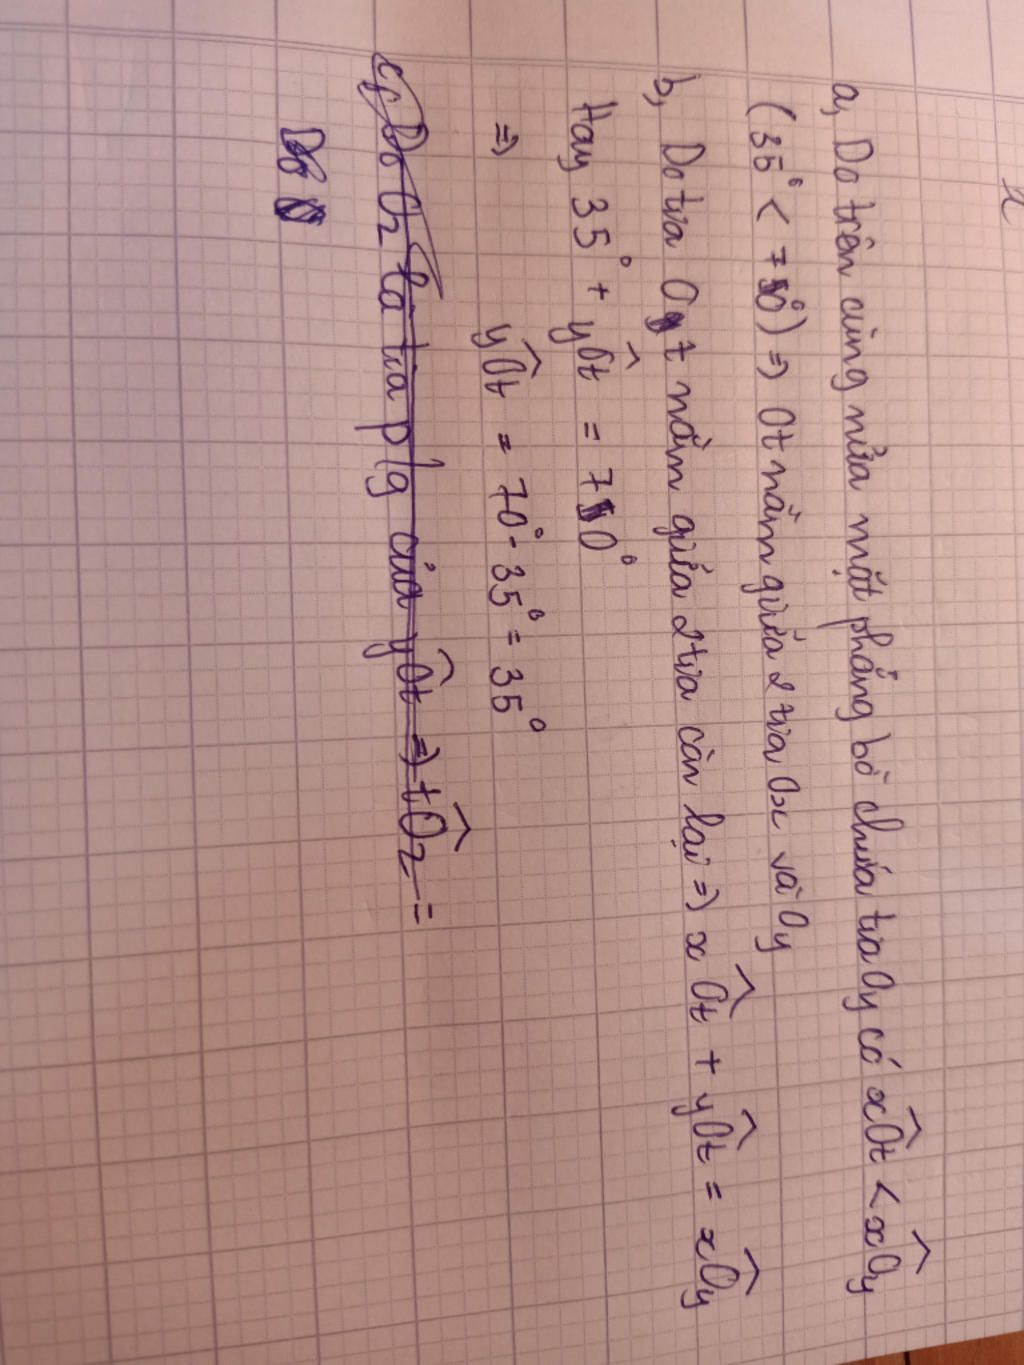 x
a, Do trên cùng nửa mặt phẳng bờ chứa tia Oy có xÔt < xÔy
(35° < 70°) => Ot nằm giữa 2 tia Ox và Oy
b, Do tia Ot nằm giữa 2 tia còn lại => xÔt + yÔt = xÔy
Hay 35° + yÔt = 70°
=> yÔt = 70° - 35° = 35°
c, Do Oz là tia p/g của yÔt => tÔz =
Do